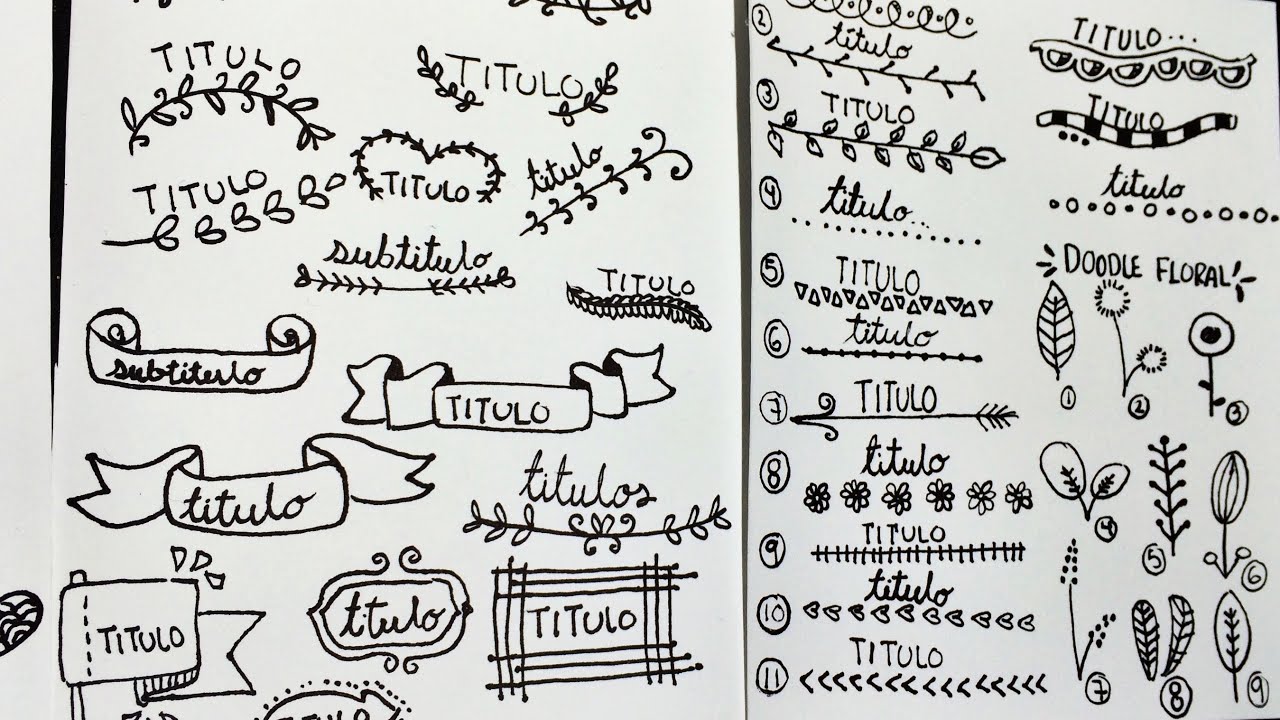 TITULO
TITULO
TITULO
titulo
TITULO
subtitulo
TITULO
subtitulo
TITULO
titulo
titulos
TITULO
titulo
TITULO
TITULO
2
titulo
3
TITULO
4
titulo...
5
TITULO
6
titulo
7
TITULO
8
titulo
9
TITULO
10
titulo
11
TITULO
TITULO...
TITULO
titulo
DOODLE FLORAL
1
2
3
4
5
6
7
8
9